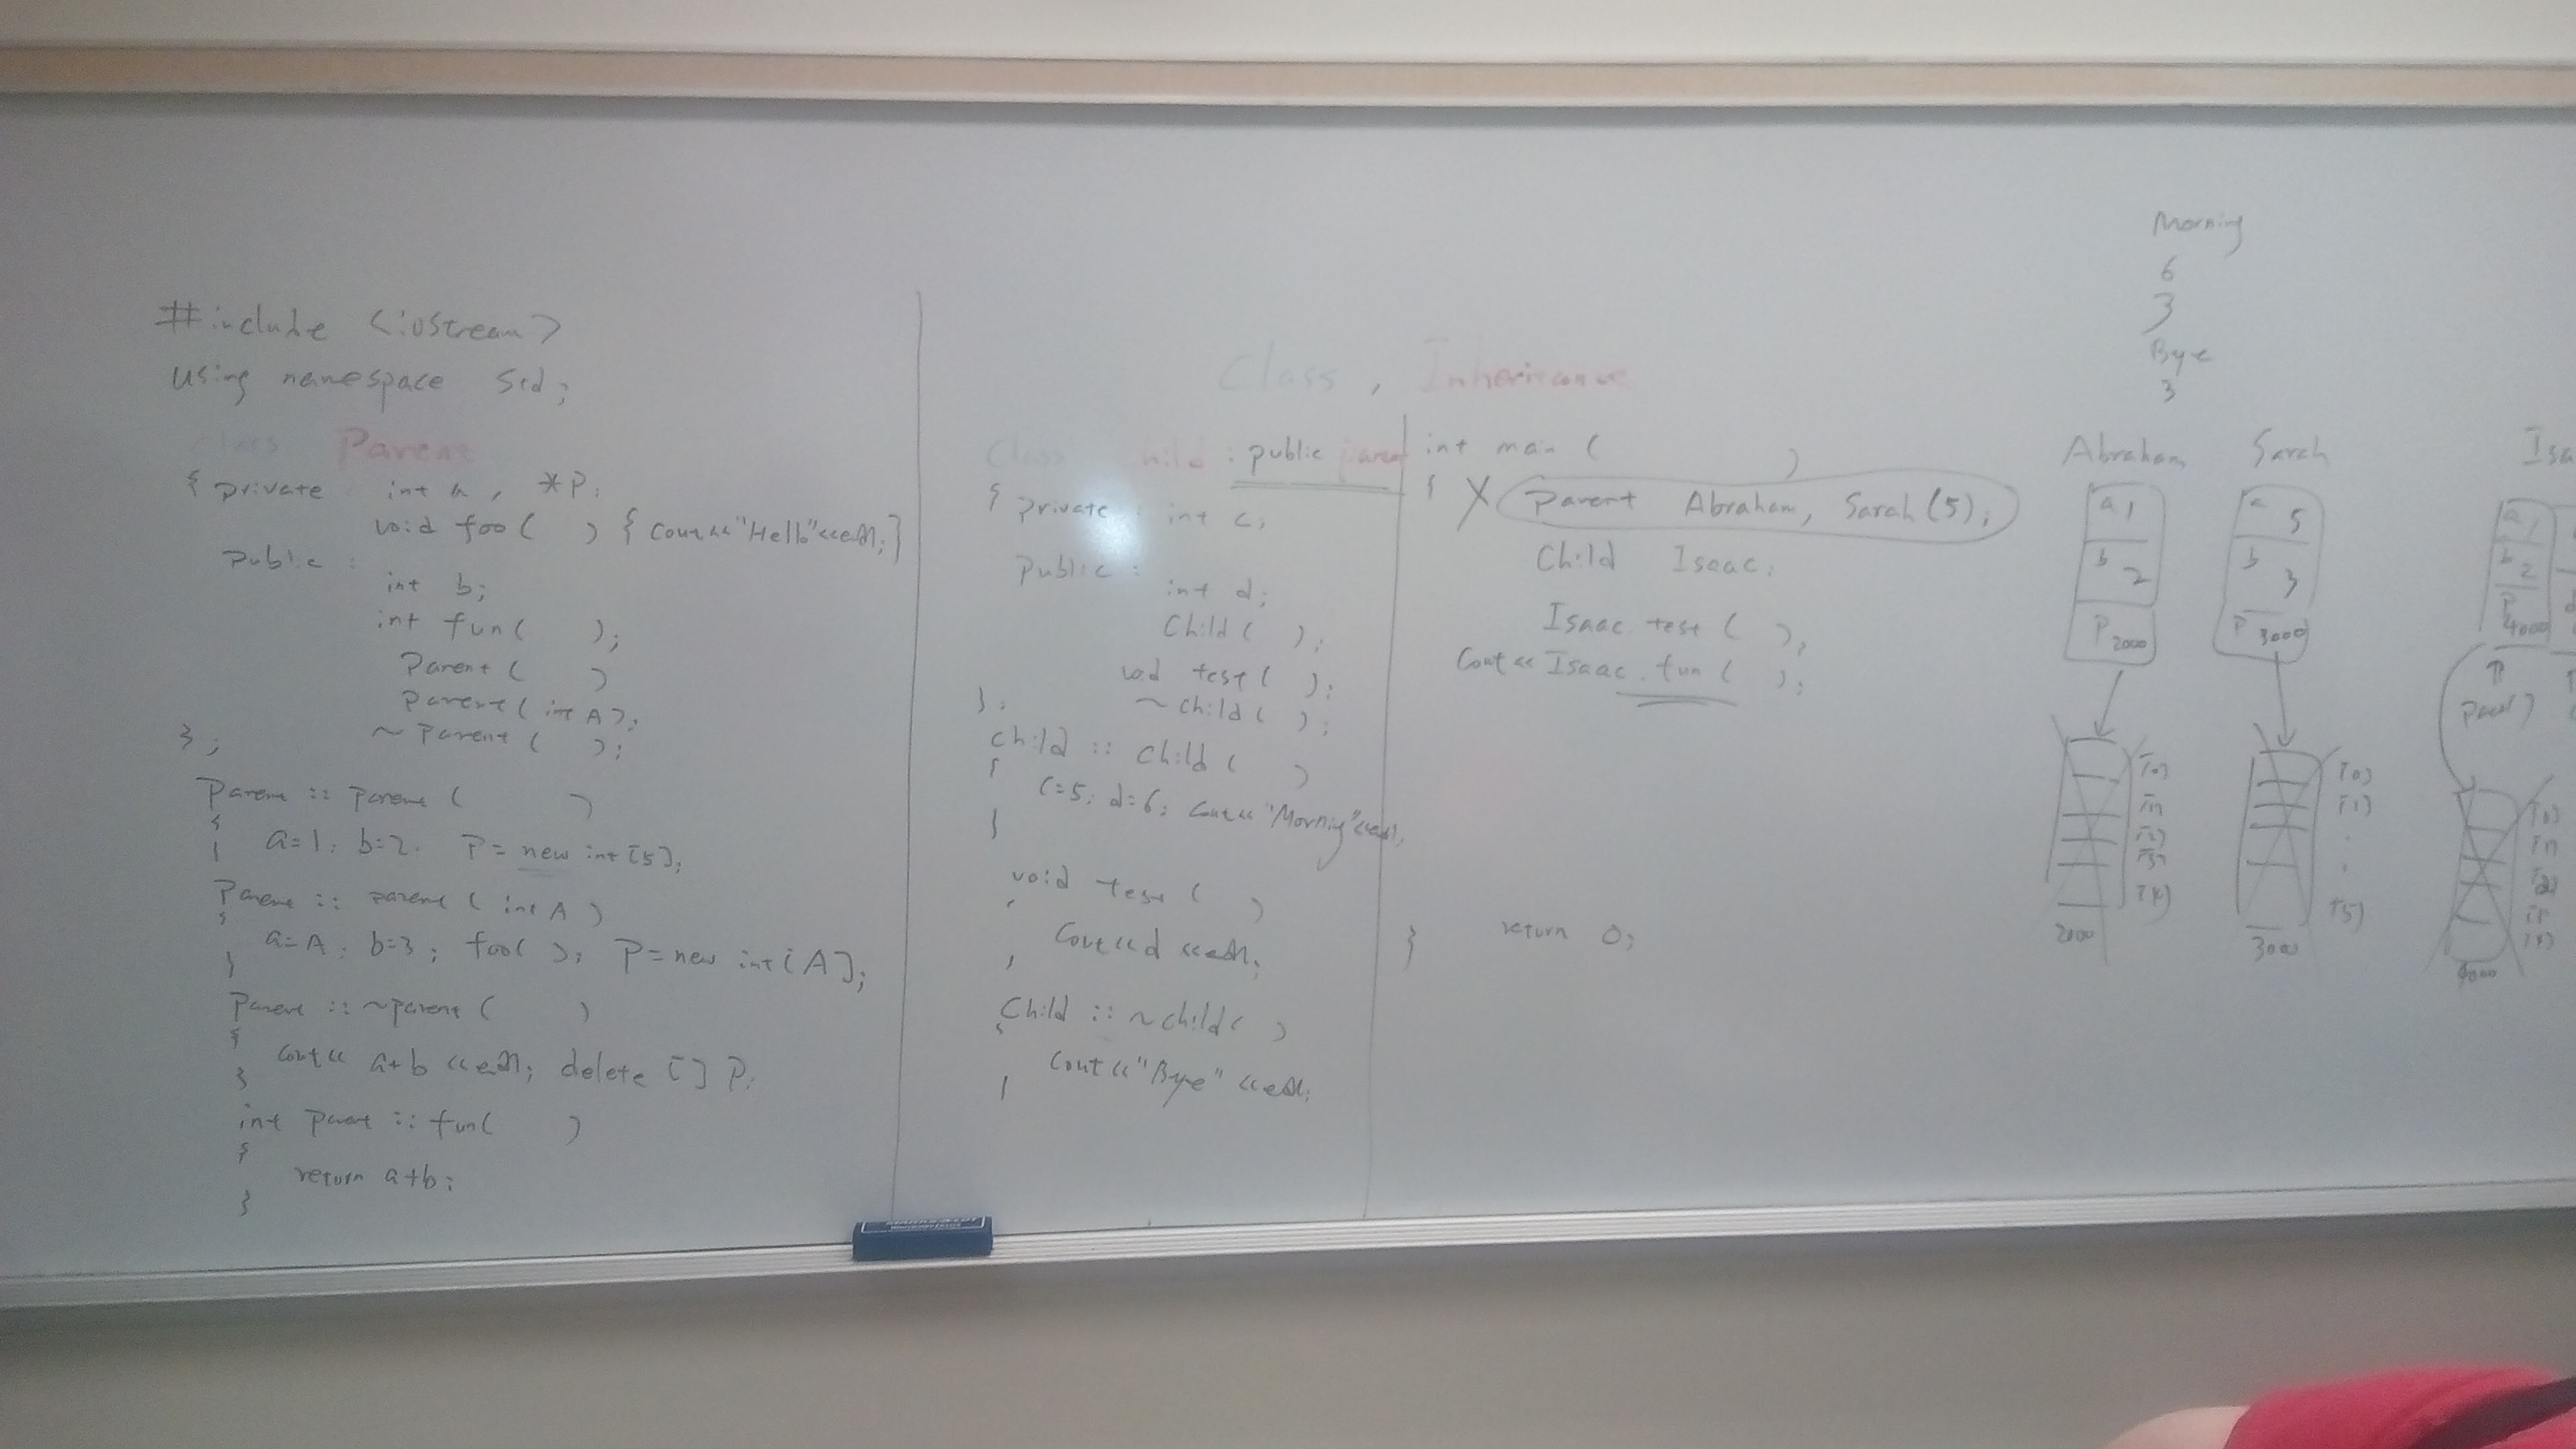 #include <iostream>
using namespace std;
class Parent
{ private : int a, *P;
void foo( ) { cout<<"Hello"<<endl;}
public :
int b;
int fun( );
Parent( )
Parent(int A);
~Parent( );
};
Parent :: parent ( )
{
a=1; b=2. P= new int[5];
}
Parent :: parent ( int A )
{
a=A; b=3; foo( ); P=new int[A];
}
Parent :: ~parent ( )
{
cout<< a+b <<endl; delete [] P;
}
int Parent :: fun( )
{
return a+b;
}
Class , Inheritance
Class Child : public parent
{ private : int c;
public :
int d;
Child( );
void test( );
~child( );
};
Child :: Child ( )
{
c=5; d=6; cout<< "Morning"<<endl;
}
void test ( )
cout<<d<<endl;
Child :: ~child( )
{
cout<<"Bye" <<endl;
}
int main ( )
{ X Parent Abraham, Sarah(5);
Child Isaac;
Isaac.test( );
cout<< Isaac.fun( );
return 0;
}
Morning
6
3
Bye
3
Abraham Sarah Isa
a 1
b 2
P 2000
a 5
b 3
P 3000
a 1
b 2
P 4000
[0]
[1]
[2]
[3]
[4]
2000
[0]
[1]
.
.
[5]
3000
[0]
[1]
4000